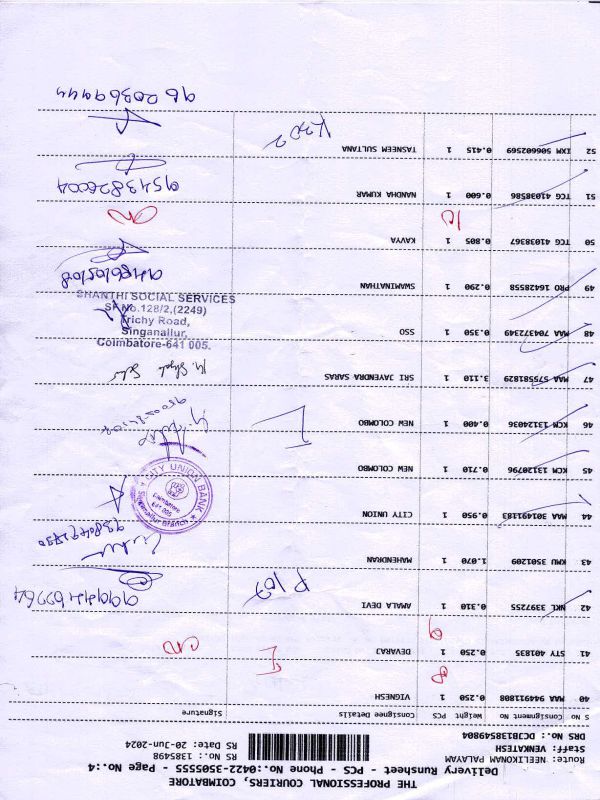 THE PROFESSIONAL COURIERS, COIMBATORE
Delivery Runsheet - PCS - Phone No.:0422-3505555 - Page No.:4
Route: NEELIKONAM PALAYAM
Staff: VENKATESH
DRS No.: DCJB1385498004
RS No.: 1385498
RS Date: 20-Jun-2024
S No Consignment No Weight PCS Consignee Details Signature
40 MAA 944911808 0.250 1 VIGNESH
8
41 STY 401835 0.250 1 DEVARAJ
9
42 NKL 3397255 0.310 1 AMALA DEVI
43 KMU 3501209 1.070 1 MAHENDRAN
44 MAA 301491183 0.950 1 CITY UNION
CITY UNION BANK
Coimbatore
641 005
Singanallur Branch
45 KCM 13120796 0.710 1 NEW COLOMBO
46 KCM 13124036 0.400 1 NEW COLOMBO
47 MAA 575581829 3.110 1 SRI JAYENDRA SARAS
48 MAA 704372349 0.350 1 SSO
SHANTHI SOCIAL SERVICES
SF.No.128/2,(2249)
Trichy Road,
Singanallur,
Coimbatore-641 005.
49 PRO 16428558 0.290 1 SWAMINATHAN
50 TCG 41038367 0.805 1 KAVYA
10
51 TCG 41038586 0.600 1 NANDHA KUMAR
9543826004
52 IXM 506602569 0.415 1 TASNEEM SULTANA
9620369444